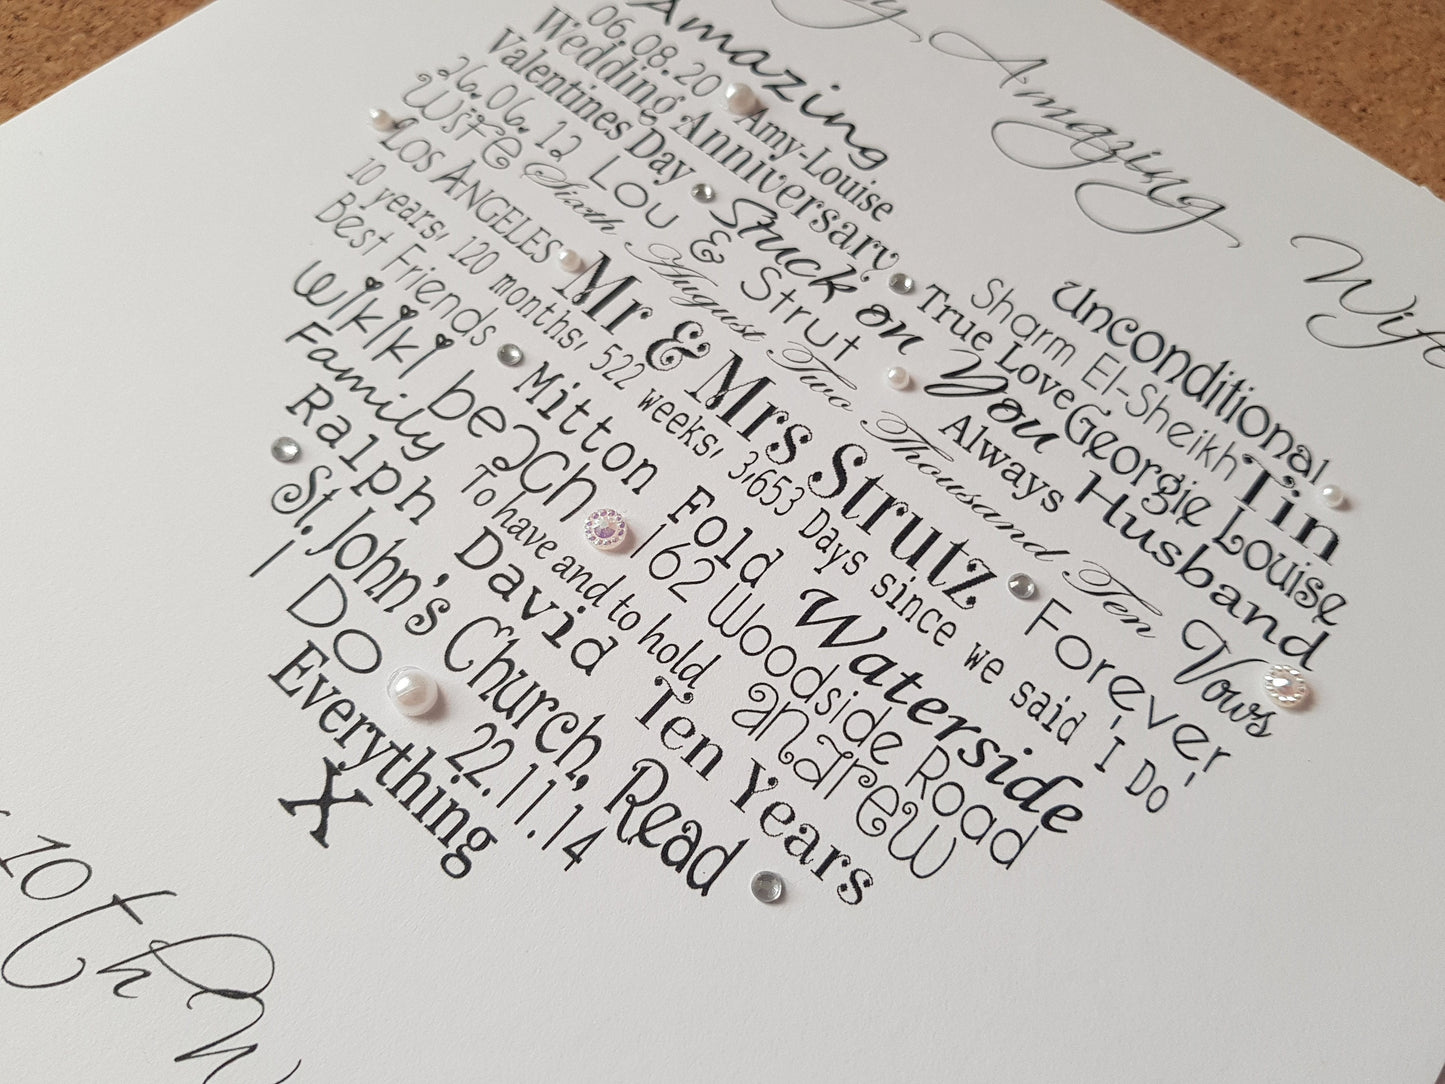 y Amazing Wife
Amazing
unconditional
06.08.20 Amy-Louise
Sharm El-Sheikh Tin
Wedding Anniversary True Love Georgie Louise
Valentines Day Stuck on You Husband
26.06.12 Lou & Strut Always
Wife Sixth August Two Thousand Ten Vows
LOS ANGELES Mr & Mrs Strutz Forever
10 years, 120 months, 522 weeks, 3,653 Days since we said 'I Do'
Best Friends Mitton Fold Waterside
Wikiki beach 162 Woodside Road
Family To have and to hold andrew
Ralph David Ten Years
St. John's Church, Read
I Do 22.11.14
Everything
X
10th W